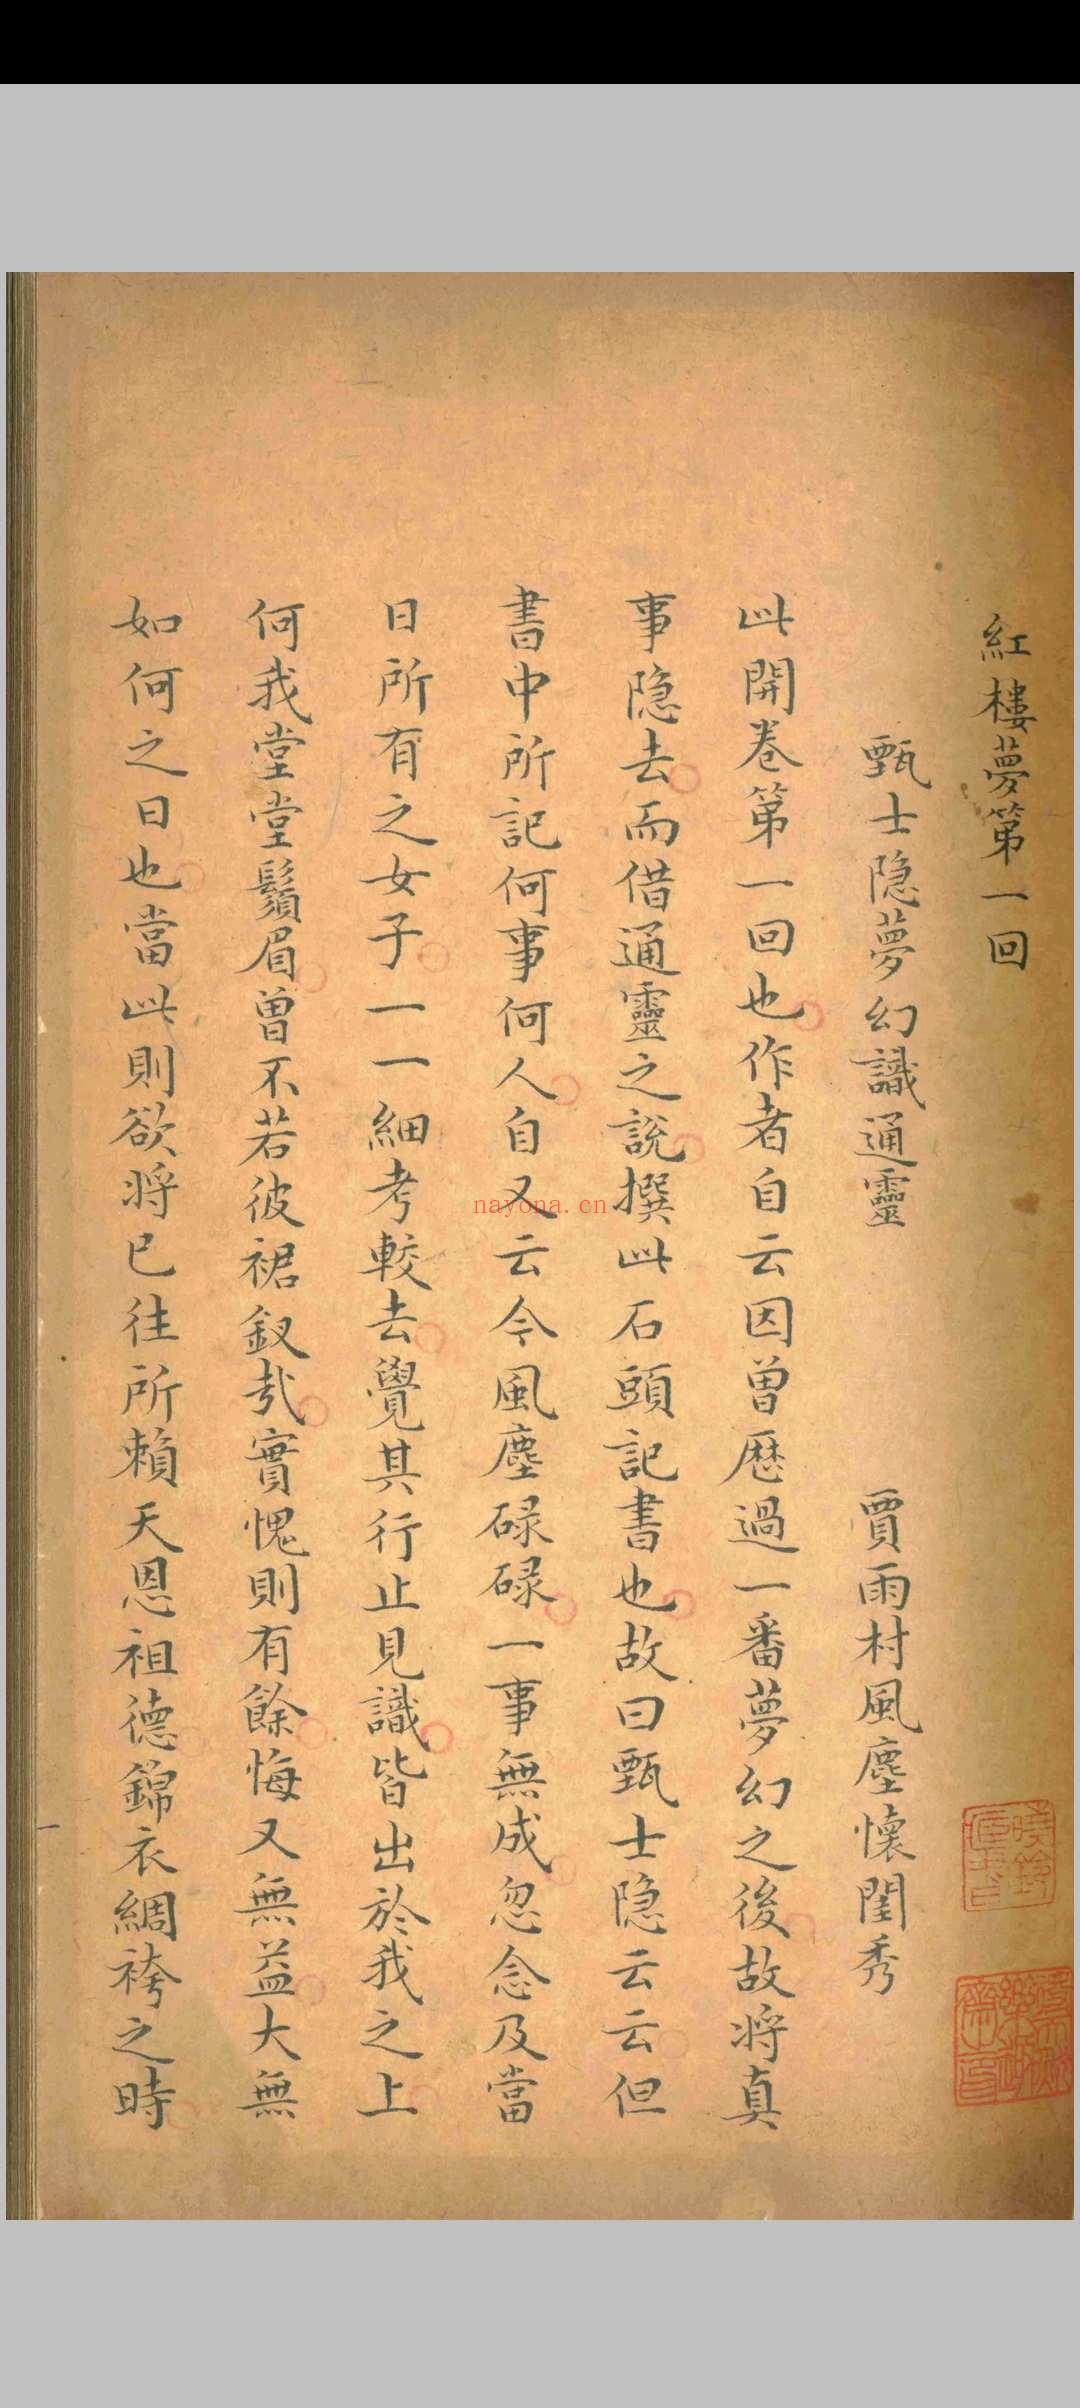 紅樓夢第一回
甄士隐夢幻識通靈 賈雨村風塵懷閨秀
此開卷第一回也作者自云因曽歴過一番夢幻之後故將真
事隐去而借通靈之說撰此石頭記書也故曰甄士隐云云但
書中所記何事何人自又云今風塵碌碌一事無成忽念及當
日所有之女子一一細考較去覺其行止見識皆出於我之上
何我堂堂鬚眉曽不若彼裙釵㦲實愧則有餘悔又無益大無
如何之日也當此則欲將已往所賴天恩祖德錦衣綢袴之時
一
nayona.cn